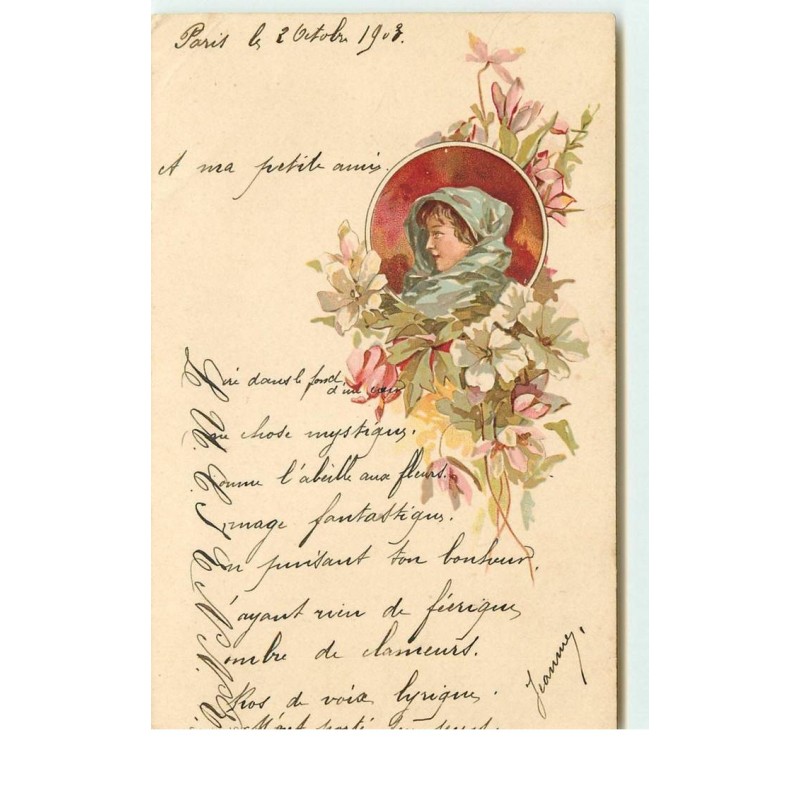 Paris le 2 Octobre 1903.
A ma petite amie.
Lire dans le fond
d'un cœur
Une chose mystique,
Comme l'abeille aux fleurs.
Image fantastique.
En puisant ton bonheur.
N'ayant rien de féerique,
Nombre de clameurs.
de voix lyrique.
Jeanne,